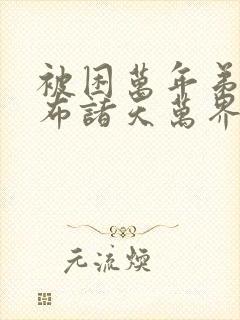 被困萬年弟
布諸天萬界
元流煥